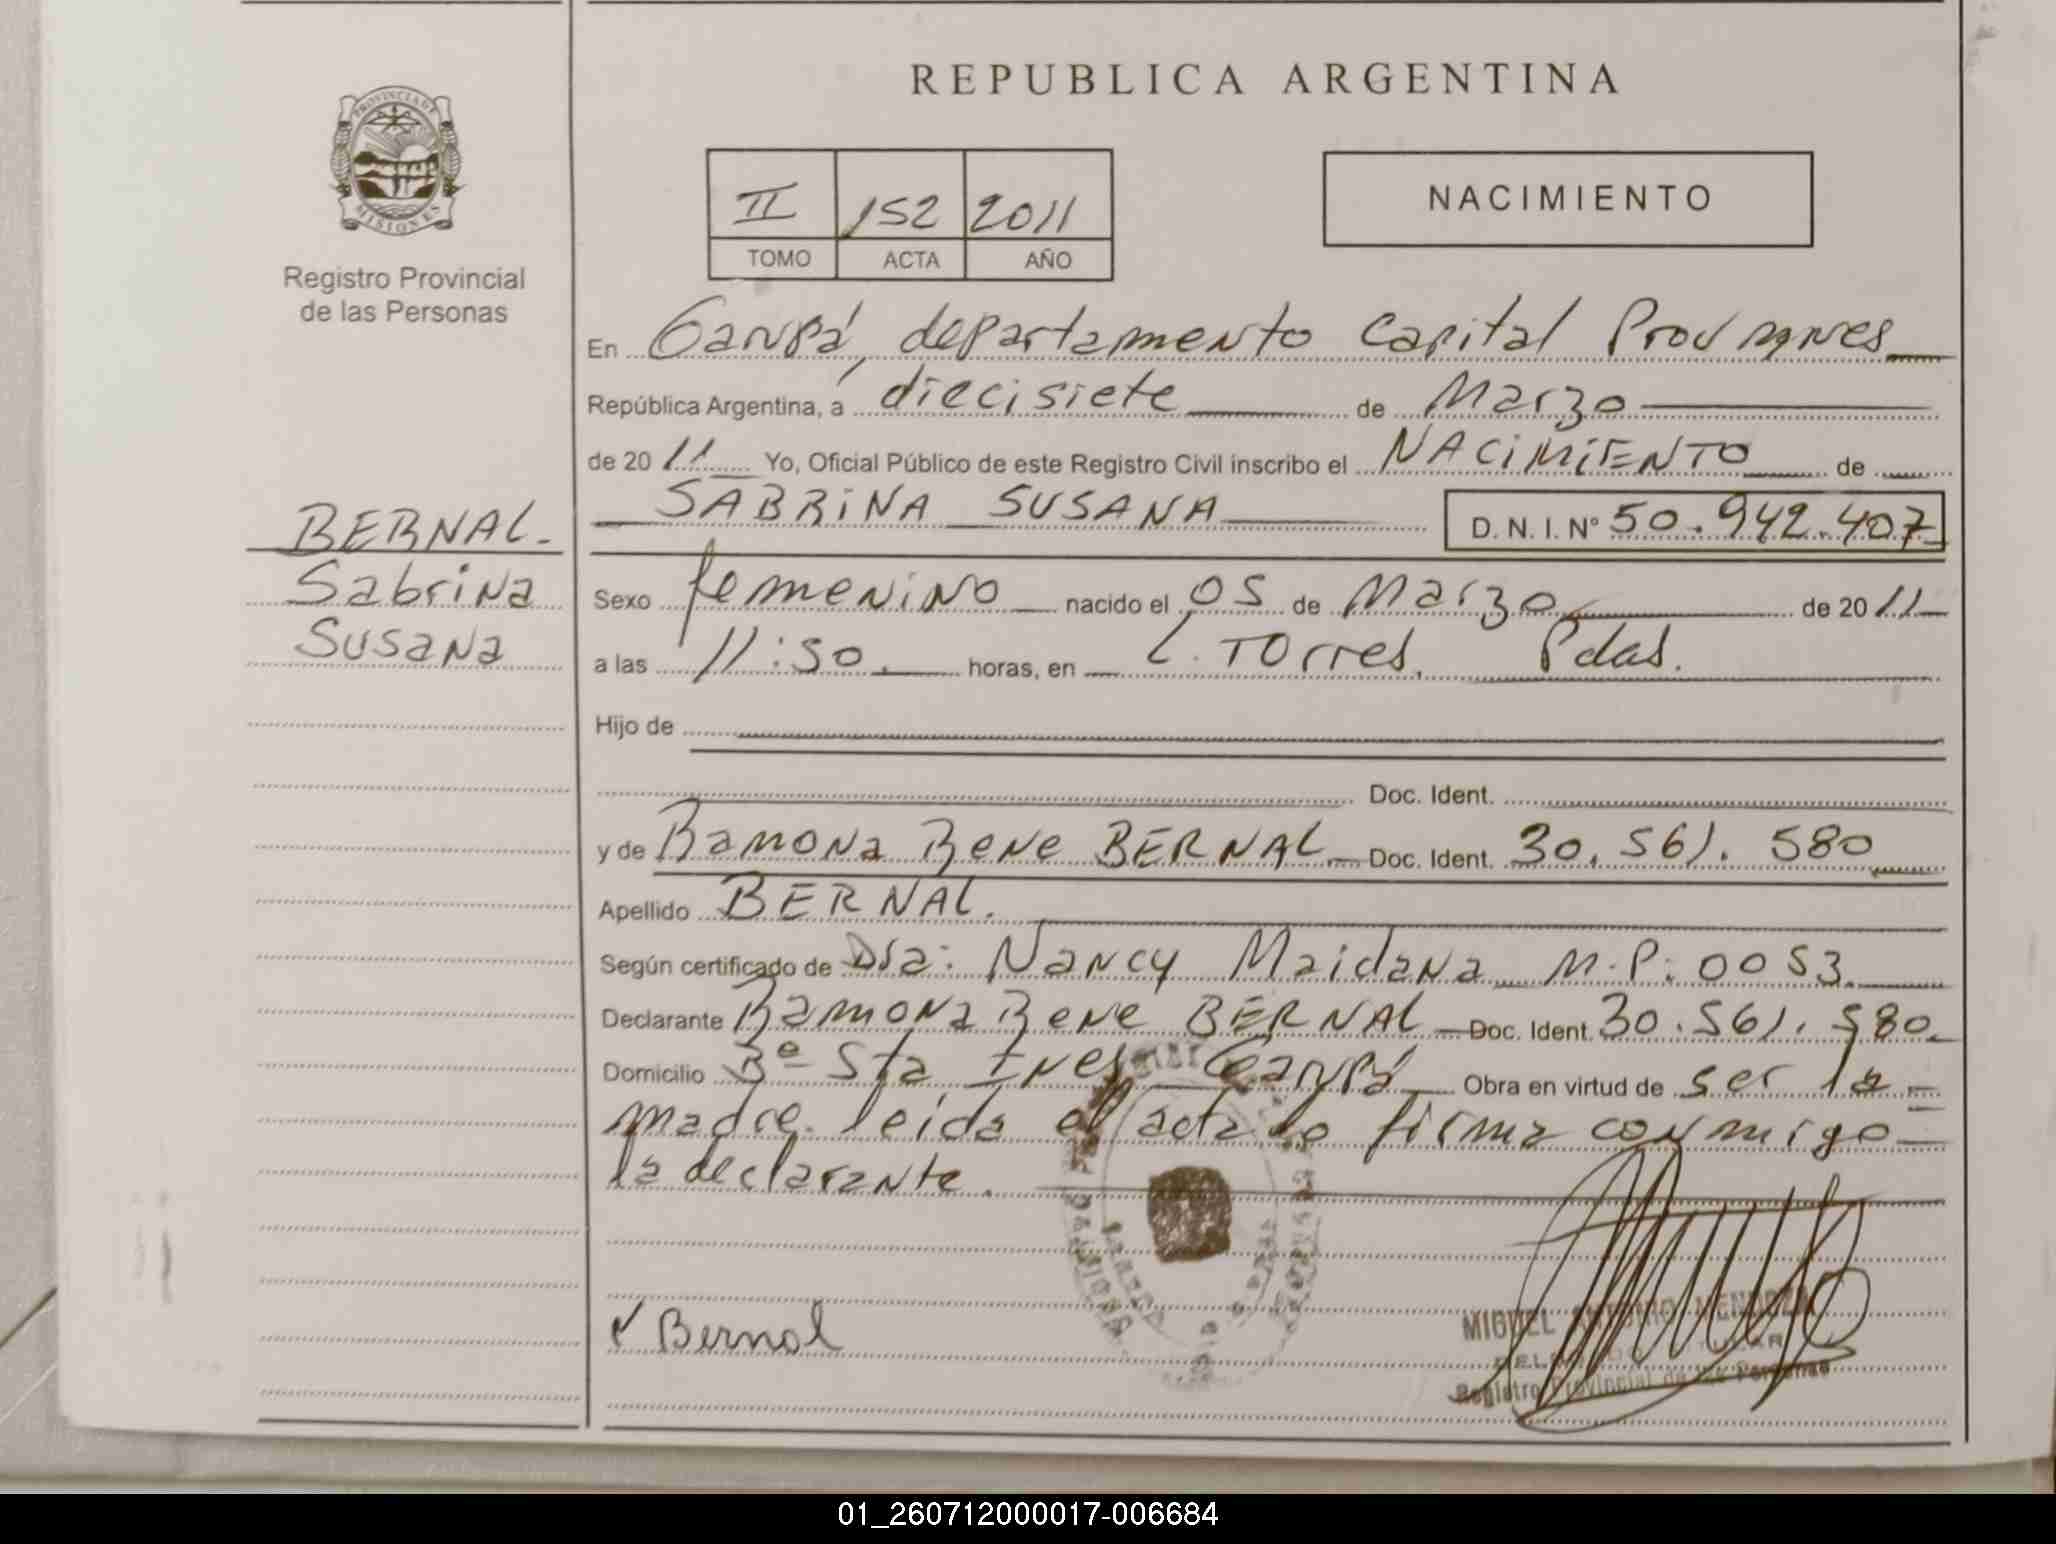 REPUBLICA ARGENTINA
PROVINCIA DE
MISIONES
Registro Provincial
de las Personas
II 152 2011
TOMO ACTA AÑO
NACIMIENTO
En Garupá, departamento Capital Prov Mnes
República Argentina, a diecisiete de Marzo
de 2011 Yo, Oficial Público de este Registro Civil inscribo el NACIMIENTO de
SABRINA SUSANA D. N. I. Nº 50.942.407
BERNAL.
Sabrina
Susana
Sexo femenino nacido el 05 de Marzo de 2011
a las 11:50. horas, en L. Torres, Pdas.
Hijo de
Doc. Ident.
y de Ramona Rene BERNAL Doc. Ident. 30.561.580
Apellido BERNAL.
Según certificado de Dra: Nancy Maidana M.P: 0053.
Declarante Ramona Rene BERNAL Doc. Ident. 30.561.580.
Domicilio Bº Sta Ines Garupá Obra en virtud de ser la
madre. leida el acta lo firma conmigo
la declarante.
Bernal
MIGUEL ANTONIO MENDOZA
Registro Provincial de las Personas
01_260712000017-006684